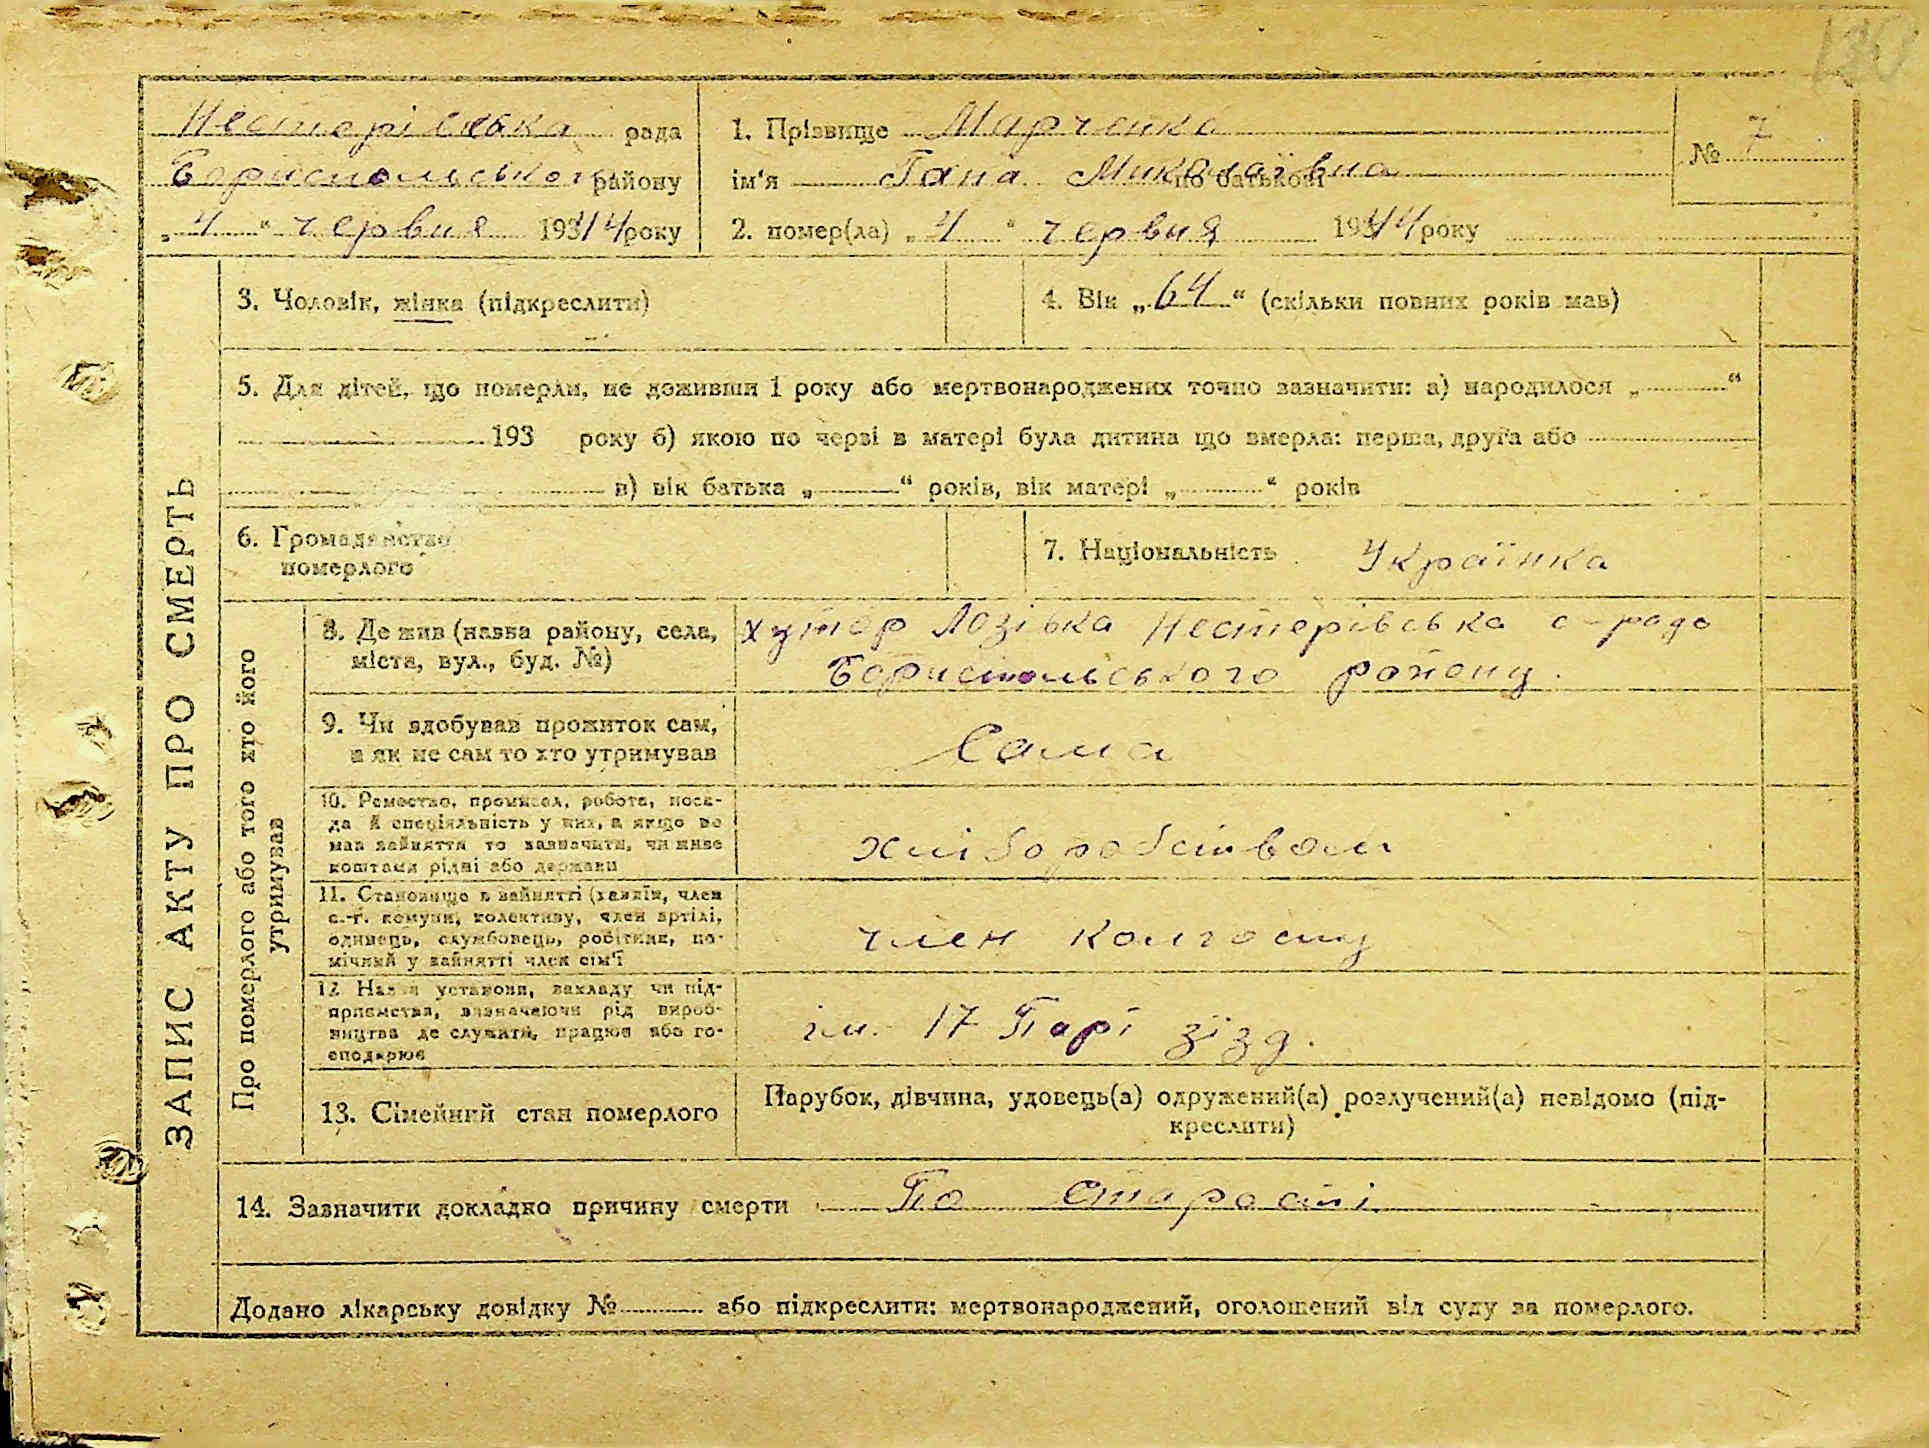 130
Нестерівська рада
Бориспольського району
„4“ червня 1944 року
1. Прізвище Марченко
ім'я Гана Миколаївна по батькові
2. помер(ла) „4“ червня 1944 року
№ 7
ЗАПИС АКТУ ПРО СМЕРТЬ
3. Чоловік, жінка (підкреслити)
4. Вік „64“ (скільки повних років мав)
5. Для дітей, що померли, не доживши 1 року або мертвонароджених точно зазначити: а) народилося „ “
193 року б) якою по черзі в матері була дитина що вмерла: перша, друга або
в) вік батька „ “ років, вік матері „ “ років
6. Громадянство
померлого
7. Національність Українка
Про померлого або того хто його
утримував
8. Де жив (назва району, села,
міста, вул., буд. №)
хутор Лозівка Нестерівська с-рада
Бориспольського району.
9. Чи здобував прожиток сам,
а як не сам то хто утримував
Сама
10. Ремество, промисел, робота, поса-
да й спеціяльність у них, а якщо не
мав зайняття то зазначити, чи живе
коштами рідні або держави
хліборобством
11. Становище в зайнятті (хазяїн, член
с.-г. комуни, колективу, член артілі,
одинець, службовець, робітник, по-
мічний у зайнятті член сім'ї
член колгоспу
12. Назва установи, закладу чи під-
приємства, визначаючи рід вироб-
ництва де служить, працює або го-
сподарює
ім. 17 Парт зїзд.
13. Сімейний стан померлого
Парубок, дівчина, удовець(а) одружений(а) розлучений(а) невідомо (під-
креслити)
14. Зазначити докладно причину смерти По старості
Додано лікарську довідку № або підкреслити: мертвонароджений, оголошений від суду за померлого.